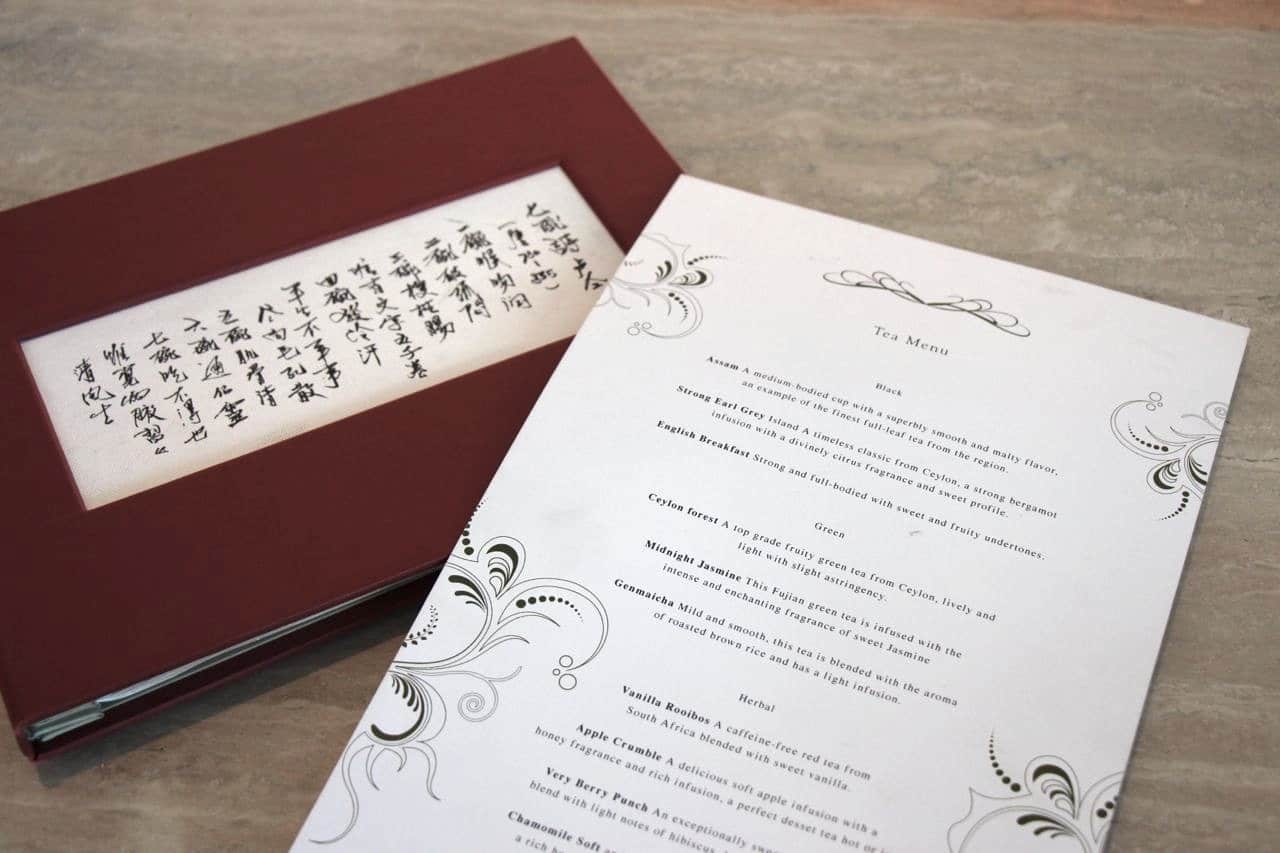 七碗詩 卢仝
一碗喉吻润
二碗破孤闷
三碗搜枯腸
惟有文字五千卷
四碗發轻汗
平生不平事
尽向毛孔散
五碗肌骨清
六碗通仙灵
七碗吃不得也
惟覚两腋習々
清风生
Tea Menu
Black
Assam A medium-bodied cup with a superbly smooth and malty flavor,
an example of the finest full-leaf tea from the region.
Strong Earl Grey Island A timeless classic from Ceylon, a strong bergamot
infusion with a divinely citrus fragrance and sweet profile.
English Breakfast Strong and full-bodied with sweet and fruity undertones.
Green
Ceylon forest A top grade fruity green tea from Ceylon, lively and
light with slight astringency.
Midnight Jasmine This Fujian green tea is infused with the
intense and enchanting fragrance of sweet Jasmine
Genmaicha Mild and smooth, this tea is blended with the aroma
of roasted brown rice and has a light infusion.
Herbal
Vanilla Rooibos A caffeine-free red tea from
South Africa blended with sweet vanilla.
Apple Crumble A delicious soft apple infusion with a
honey fragrance and rich infusion, a perfect desset tea hot or
Very Berry Punch An exceptionally
blend with light notes of hibiscus,
Chamomile Soft
a rich